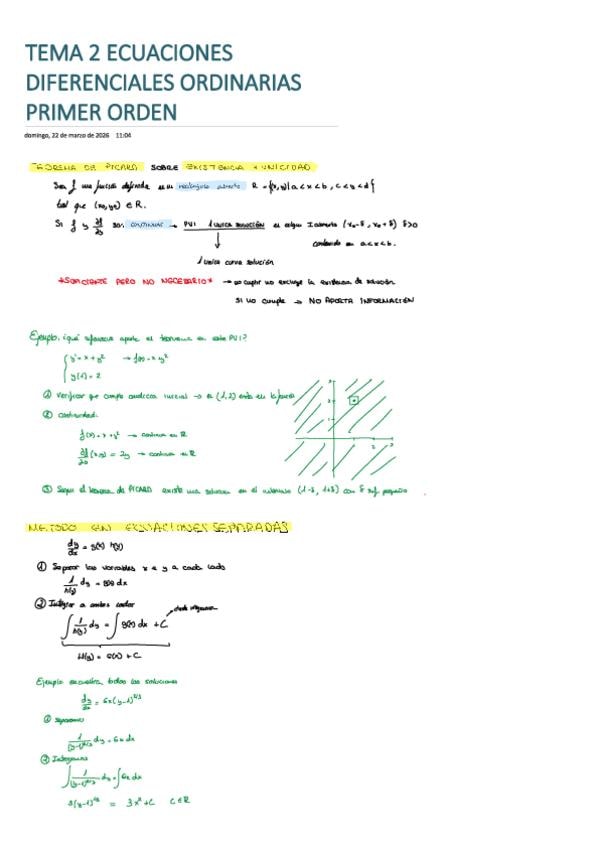 TEMA 2 ECUACIONES
DIFERENCIALES ORDINARIAS
PRIMER ORDEN
domingo, 22 de marzo de 2026 11:04
TEOREMA DE PICARD SOBRE EXISTENCIA Y UNICIDAD
Sea f una función definida en un rectángulo abierto R = {(x,y) | a < x < b, c < y < d}
tal que (x₀,y₀) ∈ R.
Si f y ∂f/∂y son continuas → PVI 1 única solución en algún I abierto (x₀-δ, x₀+δ) δ>0
contenido en a<x<b.
1 única curva solución
*SUFICIENTE PERO NO NECESARIO* → no cumplir no excluye la existencia de solución.
SI NO cumple → NO APORTA INFORMACIÓN
Ejemplo: ¿qué aporta el teorema en este PVI?
y' = x + y²
y(1) = 2
① Verificar que cumple condición inicial → (1,2) está en la
② Continuidad:
f(x) = x + y² → continua en R
(x,y) = 2y → continua en R
③ Según el teorema de PICARD existe una solución en el intervalo (1-δ, 1+δ) con δ suf. pequeño
METODO EN ECUACIONES SEPARADAS
dy/dx = g(x) h(y)
① Separar las variables x e y a cada lado
1/h(y) dy = g(x) dx
② Integrar a ambos lados
∫ 1/h(y) dy = ∫ g(x) dx + C
H(y) = G(x) + C
Ejemplo encuentra todas las soluciones
dy/dx = 6x(y-1)^2/3
① Separamos
1/(y-1)^2/3 dy = 6x dx
② Integramos
∫ 1/(y-1)^2/3 dy = ∫ 6x dx
3(y-1)^1/3 = 3x² + C C∈R